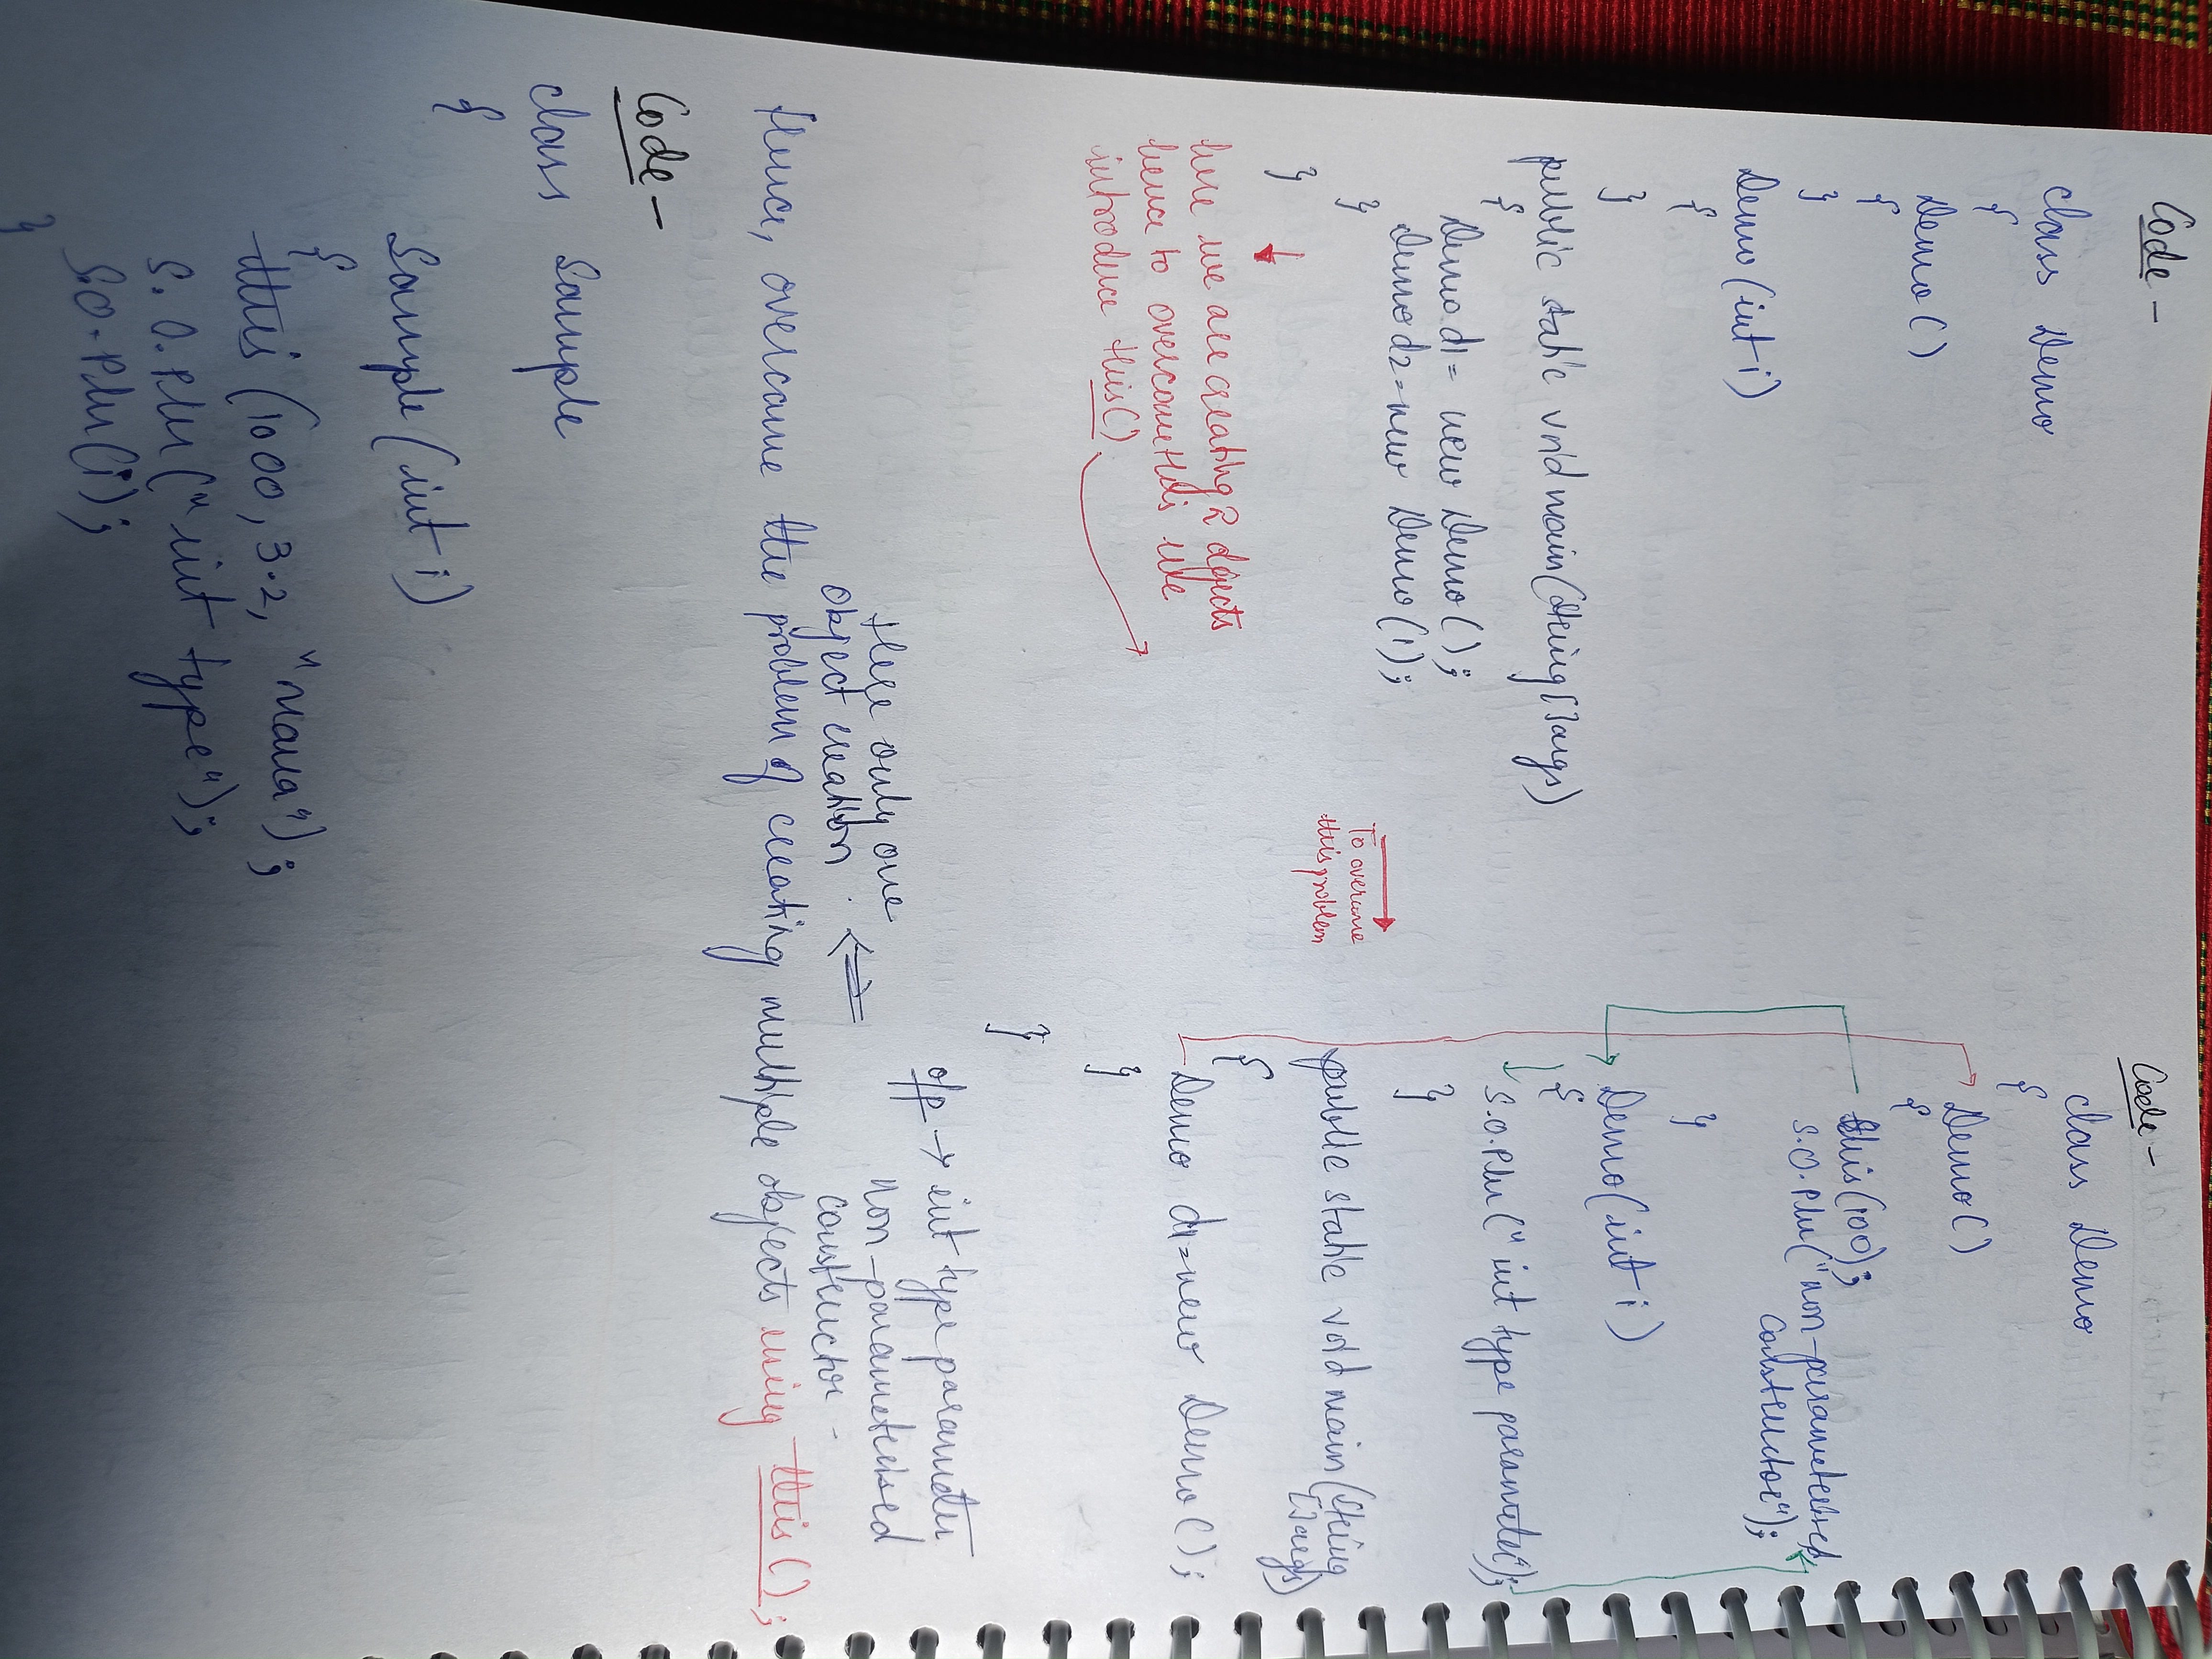 Code -
class Demo
{
Demo()
{
}
Demo(int i)
{
}
public static void main(String[]args)
{
Demo d1= new Demo();
Demo d2=new Demo(1);
}
}
here we are creating 2 objects
hence to overcome this we
introduce this()
To overcome
this problem
Code -
class Demo
{
Demo()
{
this(100);
S.O.Pln("non-parameterised
constructor");
}
Demo(int i)
{
S.O.Pln("int type parameter");
}
public static void main(String
[]args)
{
Demo d1=new Demo();
}
}
o/p → int type parameter
non-parameterised
constructor -
Here only one
object creation
Hence, overcame the problem of creating multiple objects using this();
Code -
class Sample
{
Sample(int i)
{
this(1000, 3.2, "
S.O.Pln("int type");
S.O.Pln(i);
}